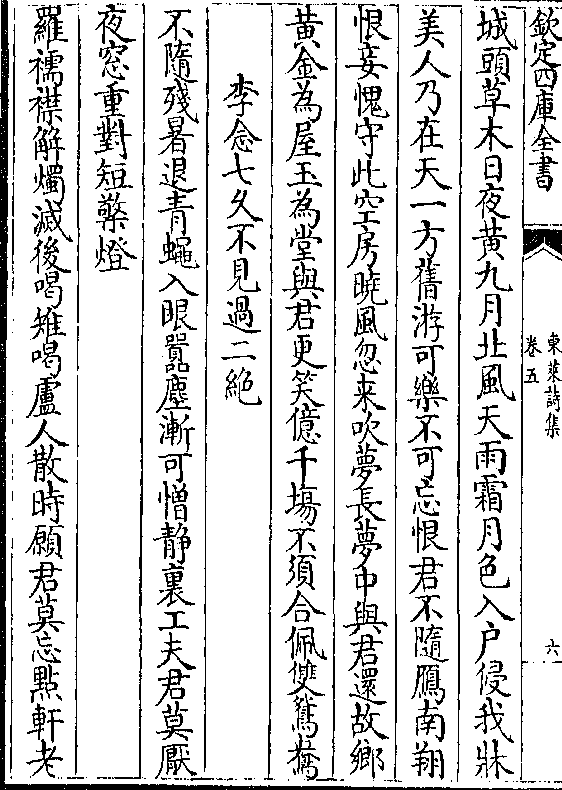 欽定四庫全書
東萊詩集
卷五
六
城頭草木日夜黃九月北風天雨霜月色入户侵我牀
美人乃在天一方舊游可樂不可忘恨君不隨鴈南翔
恨妾愧守此空房曉風忽来吹夢長夢中與君還故鄉
黄金為屋玉為堂與君更笑億千塲不須合佩雙鴛鴦
李念七久不見過二絶
不隨殘暑退青蠅入眼嚣塵漸可憎静裏工夫君莫厭
夜窓重對短檠燈
羅襦襟解燭滅後喝雉喝盧人散時願君莫忘點軒老